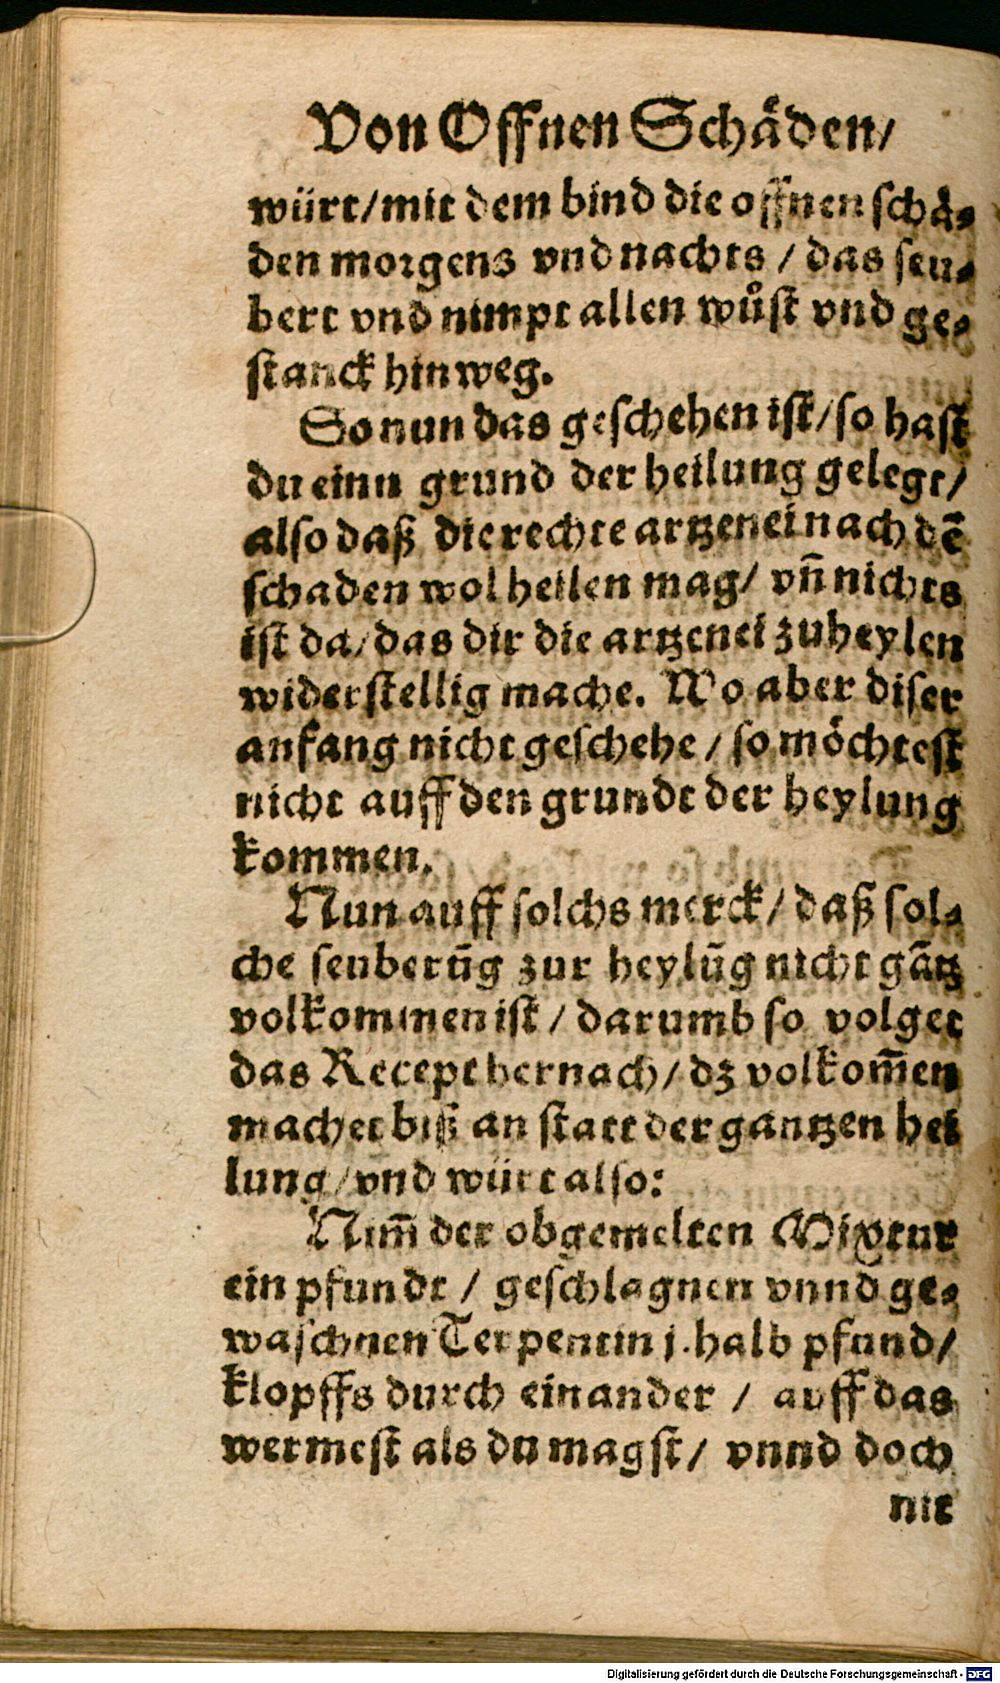 Von Offnen Schaͤden/
würt/mit dem bind die offnen schaͤ-
den morgens vnd nachts / das seu-
bert vnd nimpt allen wuͦst vnd ge-
stanck hinweg.
So nun das geschehen ist/so hast
du einn grund der heilung gelegt/
also daß die rechte artzenei nach dē
schaden wol heilen mag/ vñ nichts
ist da/das dir die artzenei zuheylen
widerstellig mache. Wo aber diser
anfang nicht geschehe / so moͤchtest
nicht auff den grundt der heylung
kommen.
Nun auff solchs merck/ daß sol-
che seuberūg zur heylūg nicht gātz
volkommen ist / darumb so volget
das Recept hernach/ dz volkom̄en
machet biß an statt der gantzen hei
lung/vnd würt also:
Nim̄ der obgemelten Mixtur
ein pfundt / geschlagnen vnnd ge-
waschnen Terpentin j. halb pfund/
klopffs durch einander / auff das
wermest als du magst/ vnnd doch
nit
Digitalisierung gefördert durch die Deutsche Forschungsgemeinschaft - DFG